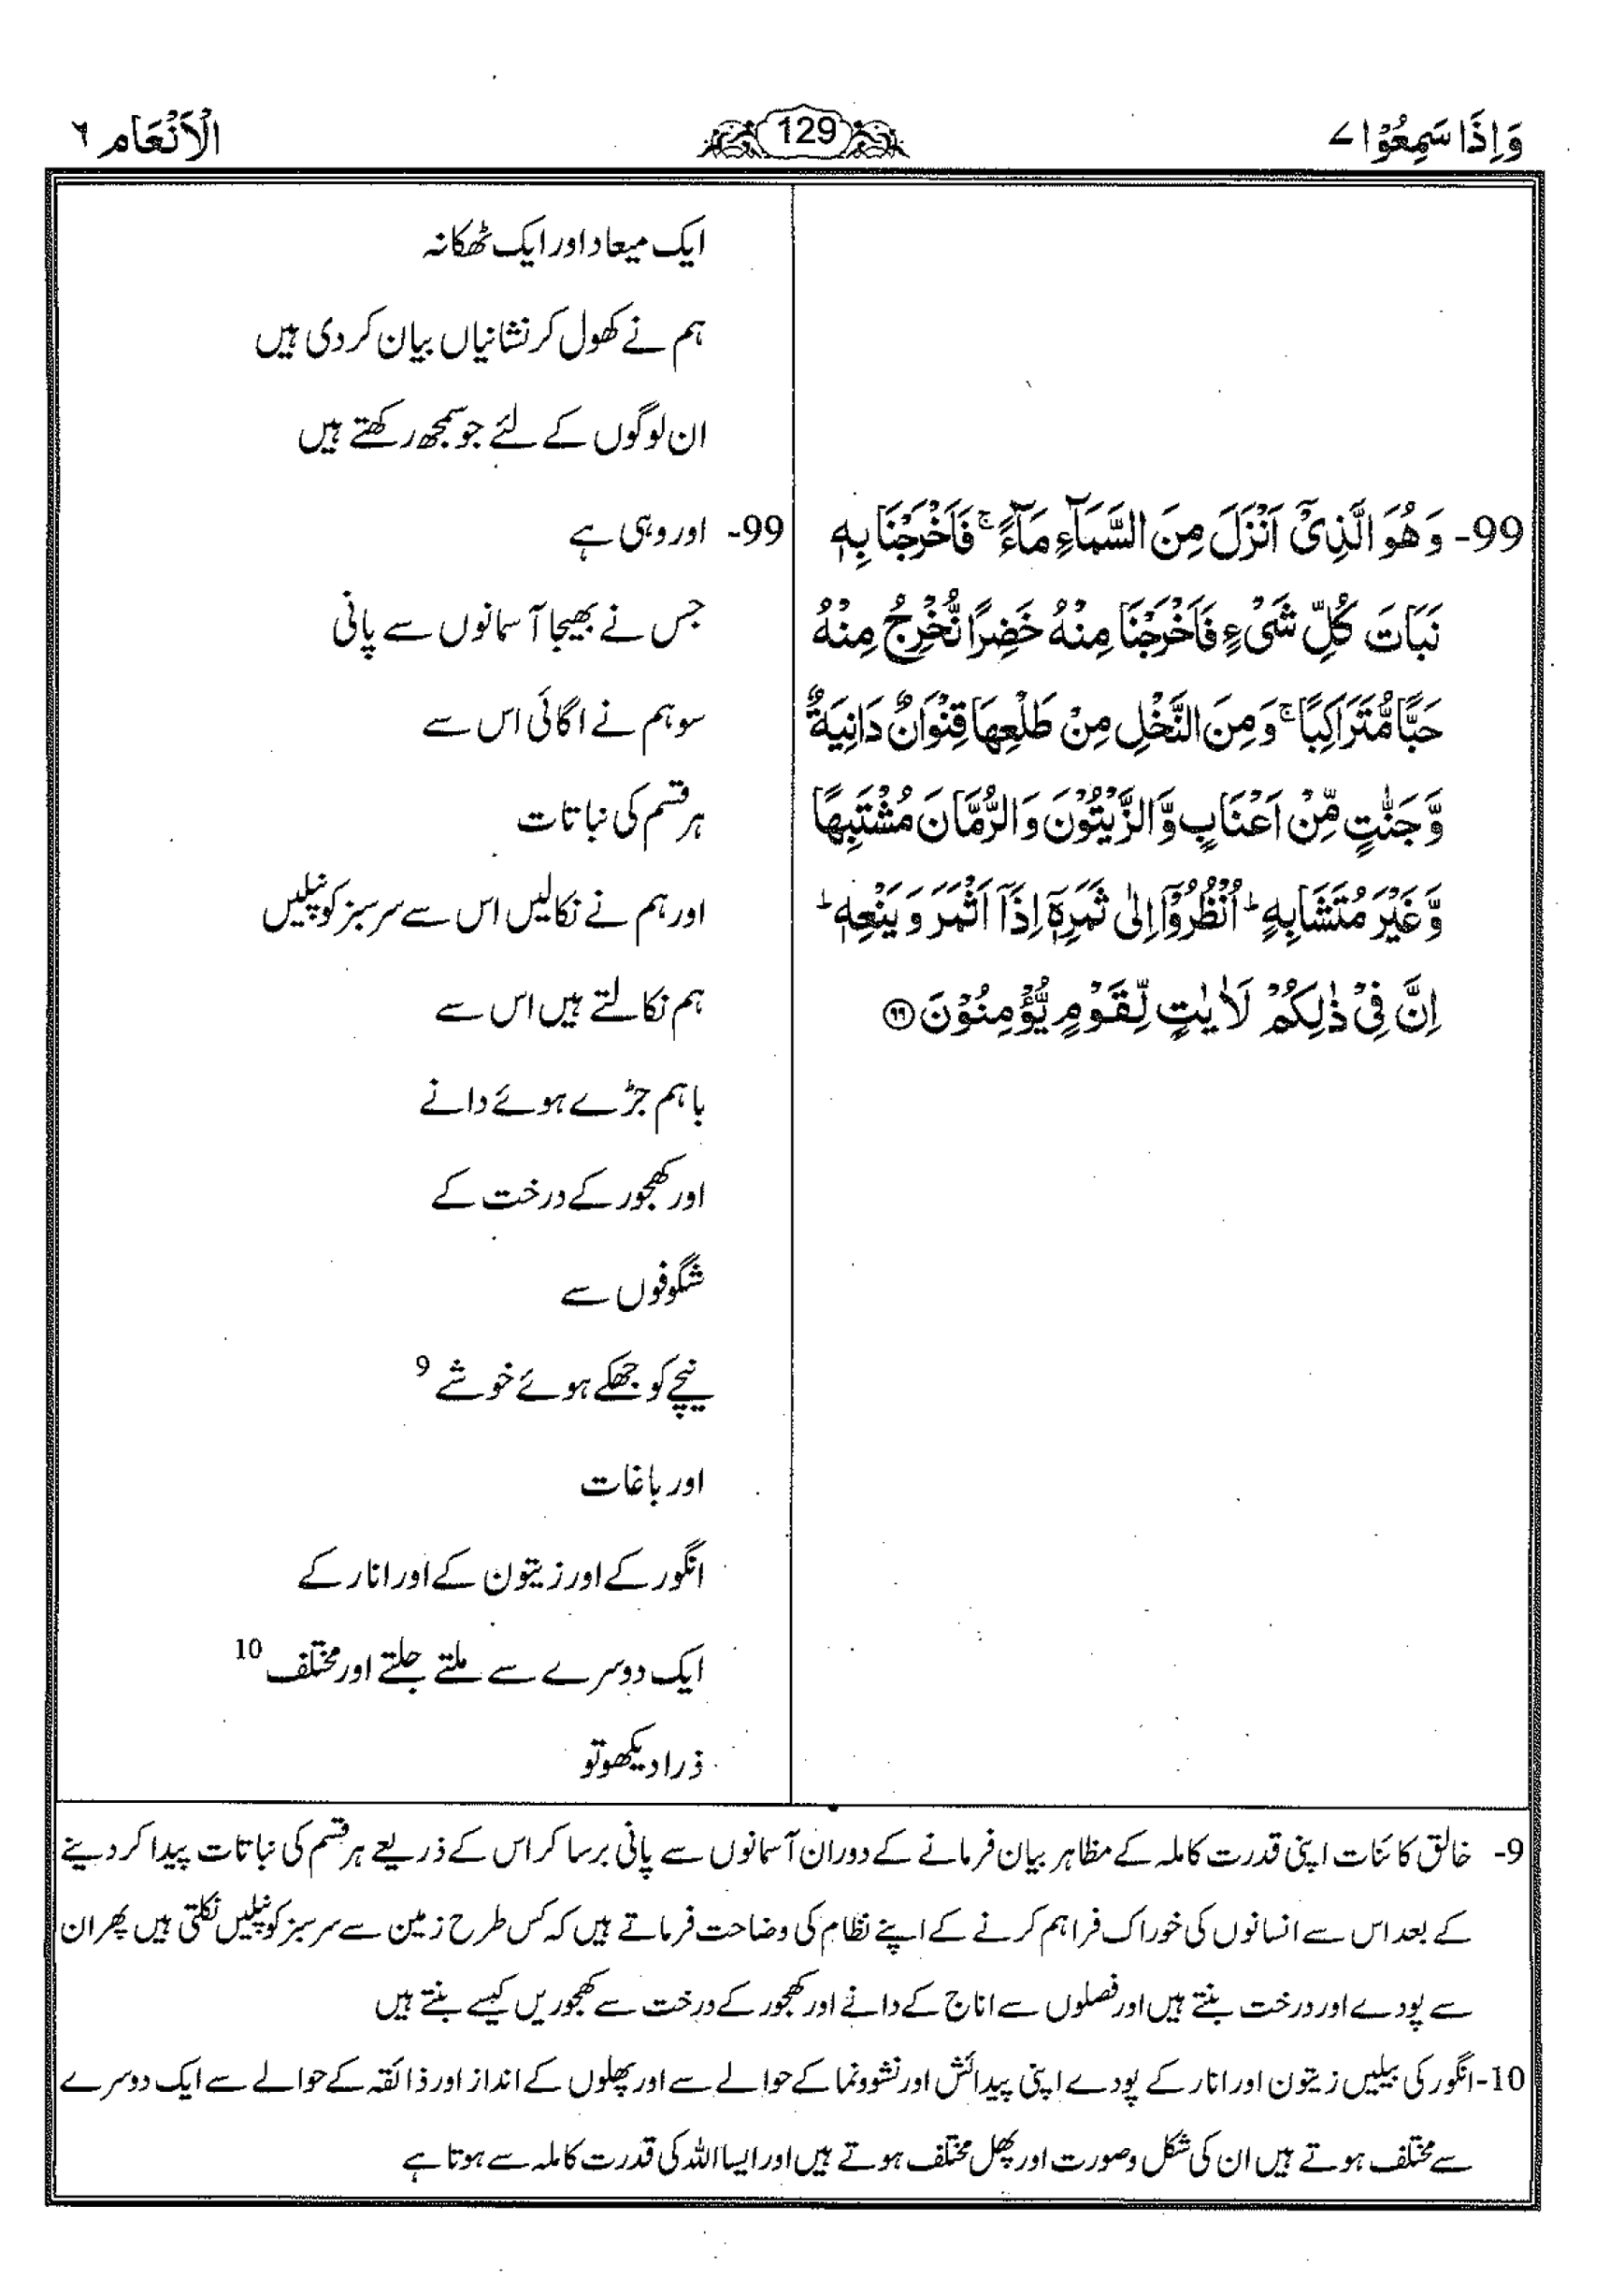 وَاِذَا سَمِعُوْا ٧
129
الْاَنْعَام ٦
99- وَهُوَ الَّذِىْٓ اَنْزَلَ مِنَ السَّمَآءِ مَآءً ۚ فَاَخْرَجْنَا بِهٖ
نَبَاتَ كُلِّ شَىْءٍ فَاَخْرَجْنَا مِنْهُ خَضِرًا نُّخْرِجُ مِنْهُ
حَبًّا مُّتَرَاكِبًا ۚ وَمِنَ النَّخْلِ مِنْ طَلْعِهَا قِنْوَانٌ دَانِيَةٌ
وَّجَنّٰتٍ مِّنْ اَعْنَابٍ وَّالزَّيْتُوْنَ وَالرُّمَّانَ مُشْتَبِهًا
وَّغَيْرَ مُتَشَابِهٍ ؕ اُنْظُرُوْٓا اِلٰى ثَمَرِهٖٓ اِذَآ اَثْمَرَ وَيَنْعِهٖ ؕ
اِنَّ فِىْ ذٰلِكُمْ لَاٰيٰتٍ لِّقَوْمٍ يُّؤْمِنُوْنَ ۝٩٩
ایک میعاد اور ایک ٹھکانہ
ہم نے کھول کر نشانیاں بیان کر دی ہیں
ان لوگوں کے لئے جو سمجھ رکھتے ہیں
99- اور وہی ہے
جس نے بھیجا آسمانوں سے پانی
سو ہم نے اگائی اس سے
ہر قسم کی نباتات
اور ہم نے نکالیں اس سے سرسبز کونپلیں
ہم نکالتے ہیں اس سے
باہم جڑے ہوئے دانے
اور کھجور کے درخت کے
شگوفوں سے
نیچے کو جھکے ہوئے خوشے 9
اور باغات
انگور کے اور زیتون کے اور انار کے
ایک دوسرے سے ملتے جلتے اور مختلف 10
ذرا دیکھو تو
9- خالق کائنات اپنی قدرت کاملہ کے مظاہر بیان فرمانے کے دوران آسمانوں سے پانی برسا کر اس کے ذریعے ہر قسم کی نباتات پیدا کر دینے
کے بعد اس سے انسانوں کی خوراک فراہم کرنے کے اپنے نظام کی وضاحت فرماتے ہیں کہ کس طرح زمین سے سرسبز کونپلیں نکلتی ہیں پھر ان
سے پودے اور درخت بنتے ہیں اور فصلوں سے اناج کے دانے اور کھجور کے درخت سے کھجوریں کیسے بنتے ہیں
10- انگور کی بیلیں زیتون اور انار کے پودے اپنی پیدائش اور نشوونما کے حوالے سے اور پھلوں کے انداز اور ذائقہ کے حوالے سے ایک دوسرے
سے مختلف ہوتے ہیں ان کی شکل و صورت اور پھل مختلف ہوتے ہیں اور ایسا اللہ کی قدرت کاملہ سے ہوتا ہے